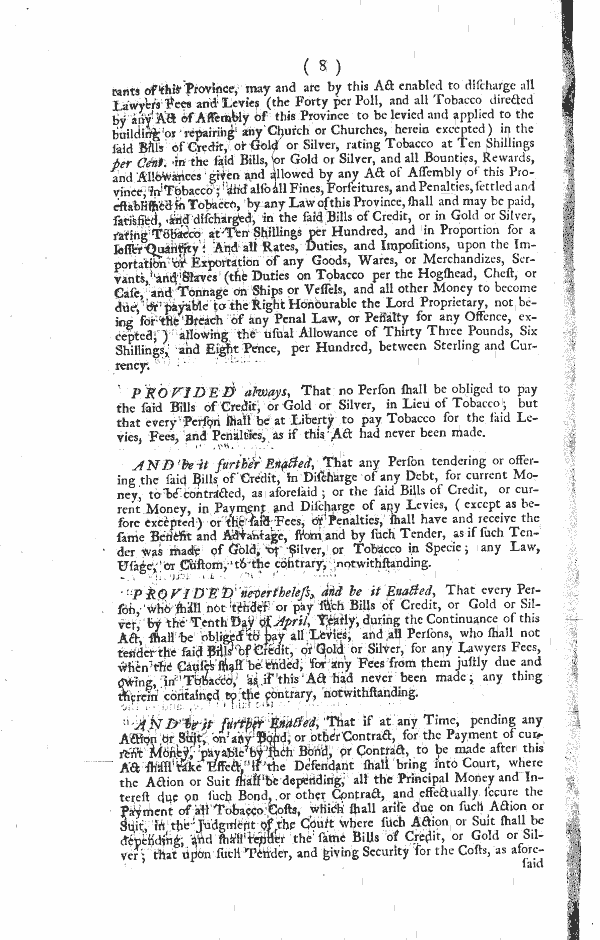 ( 8 )
rants of this Province, may and are by this Act enabled to discharge all
Lawyers Fees and Levies (the Forty per Poll, and all Tobacco directed
by any Act of Assembly of this Province to be levied and applied to the
building or repairing any Church or Churches, herein excepted) in the
said Bills of Credit, or Gold or Silver, rating Tobacco at Ten Shillings
per Cent. in the said Bills, or Gold or Silver, and all Bounties, Rewards,
and Allowances given and allowed by any Act of Assembly of this Pro-
vince, in Tobacco; and also all Fines, Forfeitures, and Penalties, settled and
established in Tobacco, by any Law of this Province, shall and may be paid,
satisfied, and discharged, in the said Bills of Credit, or in Gold or Silver,
rating Tobacco at Ten Shillings per Hundred, and in Proportion for a
lesser Quantity: And all Rates, Duties, and Impositions, upon the Im-
portation or Exportation of any Goods, Wares, or Merchandizes, Ser-
vants, and Slaves (the Duties on Tobacco per the Hogshead, Chest, or
Case, and Tonnage on Ships or Vessels, and all other Money to become
due, or payable to the Right Honourable the Lord Proprietary, not be-
ing for the Breach of any Penal Law, or Penalty for any Offence, ex-
cepted,) allowing the usual Allowance of Thirty Three Pounds, Six
Shillings, and Eight Pence, per Hundred, between Sterling and Cur-
rency.
PROVIDED always, That no Person shall be obliged to pay
the said Bills of Credit, or Gold or Silver, in Lieu of Tobacco; but
that every Person shall be at Liberty to pay Tobacco for the said Le-
vies, Fees, and Penalties, as if this Act had never been made.
AND be it further Enacted, That any Person tendering or offer-
ing the said Bills of Credit, in Discharge of any Debt, for current Mo-
ney, to be contracted, as aforesaid; or the said Bills of Credit, or cur-
rent Money, in Payment and Discharge of any Levies, (except as be-
fore excepted) or the said Fees, or Penalties, shall have and receive the
same Benefit and Advantage, from and by such Tender, as if such Ten-
der was made of Gold, or Silver, or Tobacco in Specie; any Law,
Usage, or Custom, to the contrary, notwithstanding.
PROVIDED nevertheless, and be it Enacted, That every Per-
son, who shall not tender or pay such Bills of Credit, or Gold or Sil-
ver, by the Tenth Day of April, Yearly, during the Continuance of this
Act, shall be obliged to pay all Levies, and all Persons, who shall not
tender the said Bills of Credit, or Gold or Silver, for any Lawyers Fees,
when the Causes shall be ended, for any Fees from them justly due and
owing, in Tobacco, as if this Act had never been made; any thing
therein contained to the contrary, notwithstanding.
AND be it further Enacted, That if at any Time, pending any
Action or Suit, on any Bond, or other Contract, for the Payment of cur-
rent Money, payable by such Bond, or Contract, to be made after this
Act shall take Effect, if the Defendant shall bring into Court, where
the Action or Suit shall be depending, all the Principal Money and In-
terest due on such Bond, or other Contract, and effectually secure the
Payment of all Tobacco Costs, which shall arise due on such Action or
Suit, in the Judgment of the Court where such Action or Suit shall be
depending, and shall tender the same Bills of Credit, or Gold or Sil-
ver; that upon such Tender, and giving Security for the Costs, as afore-
said